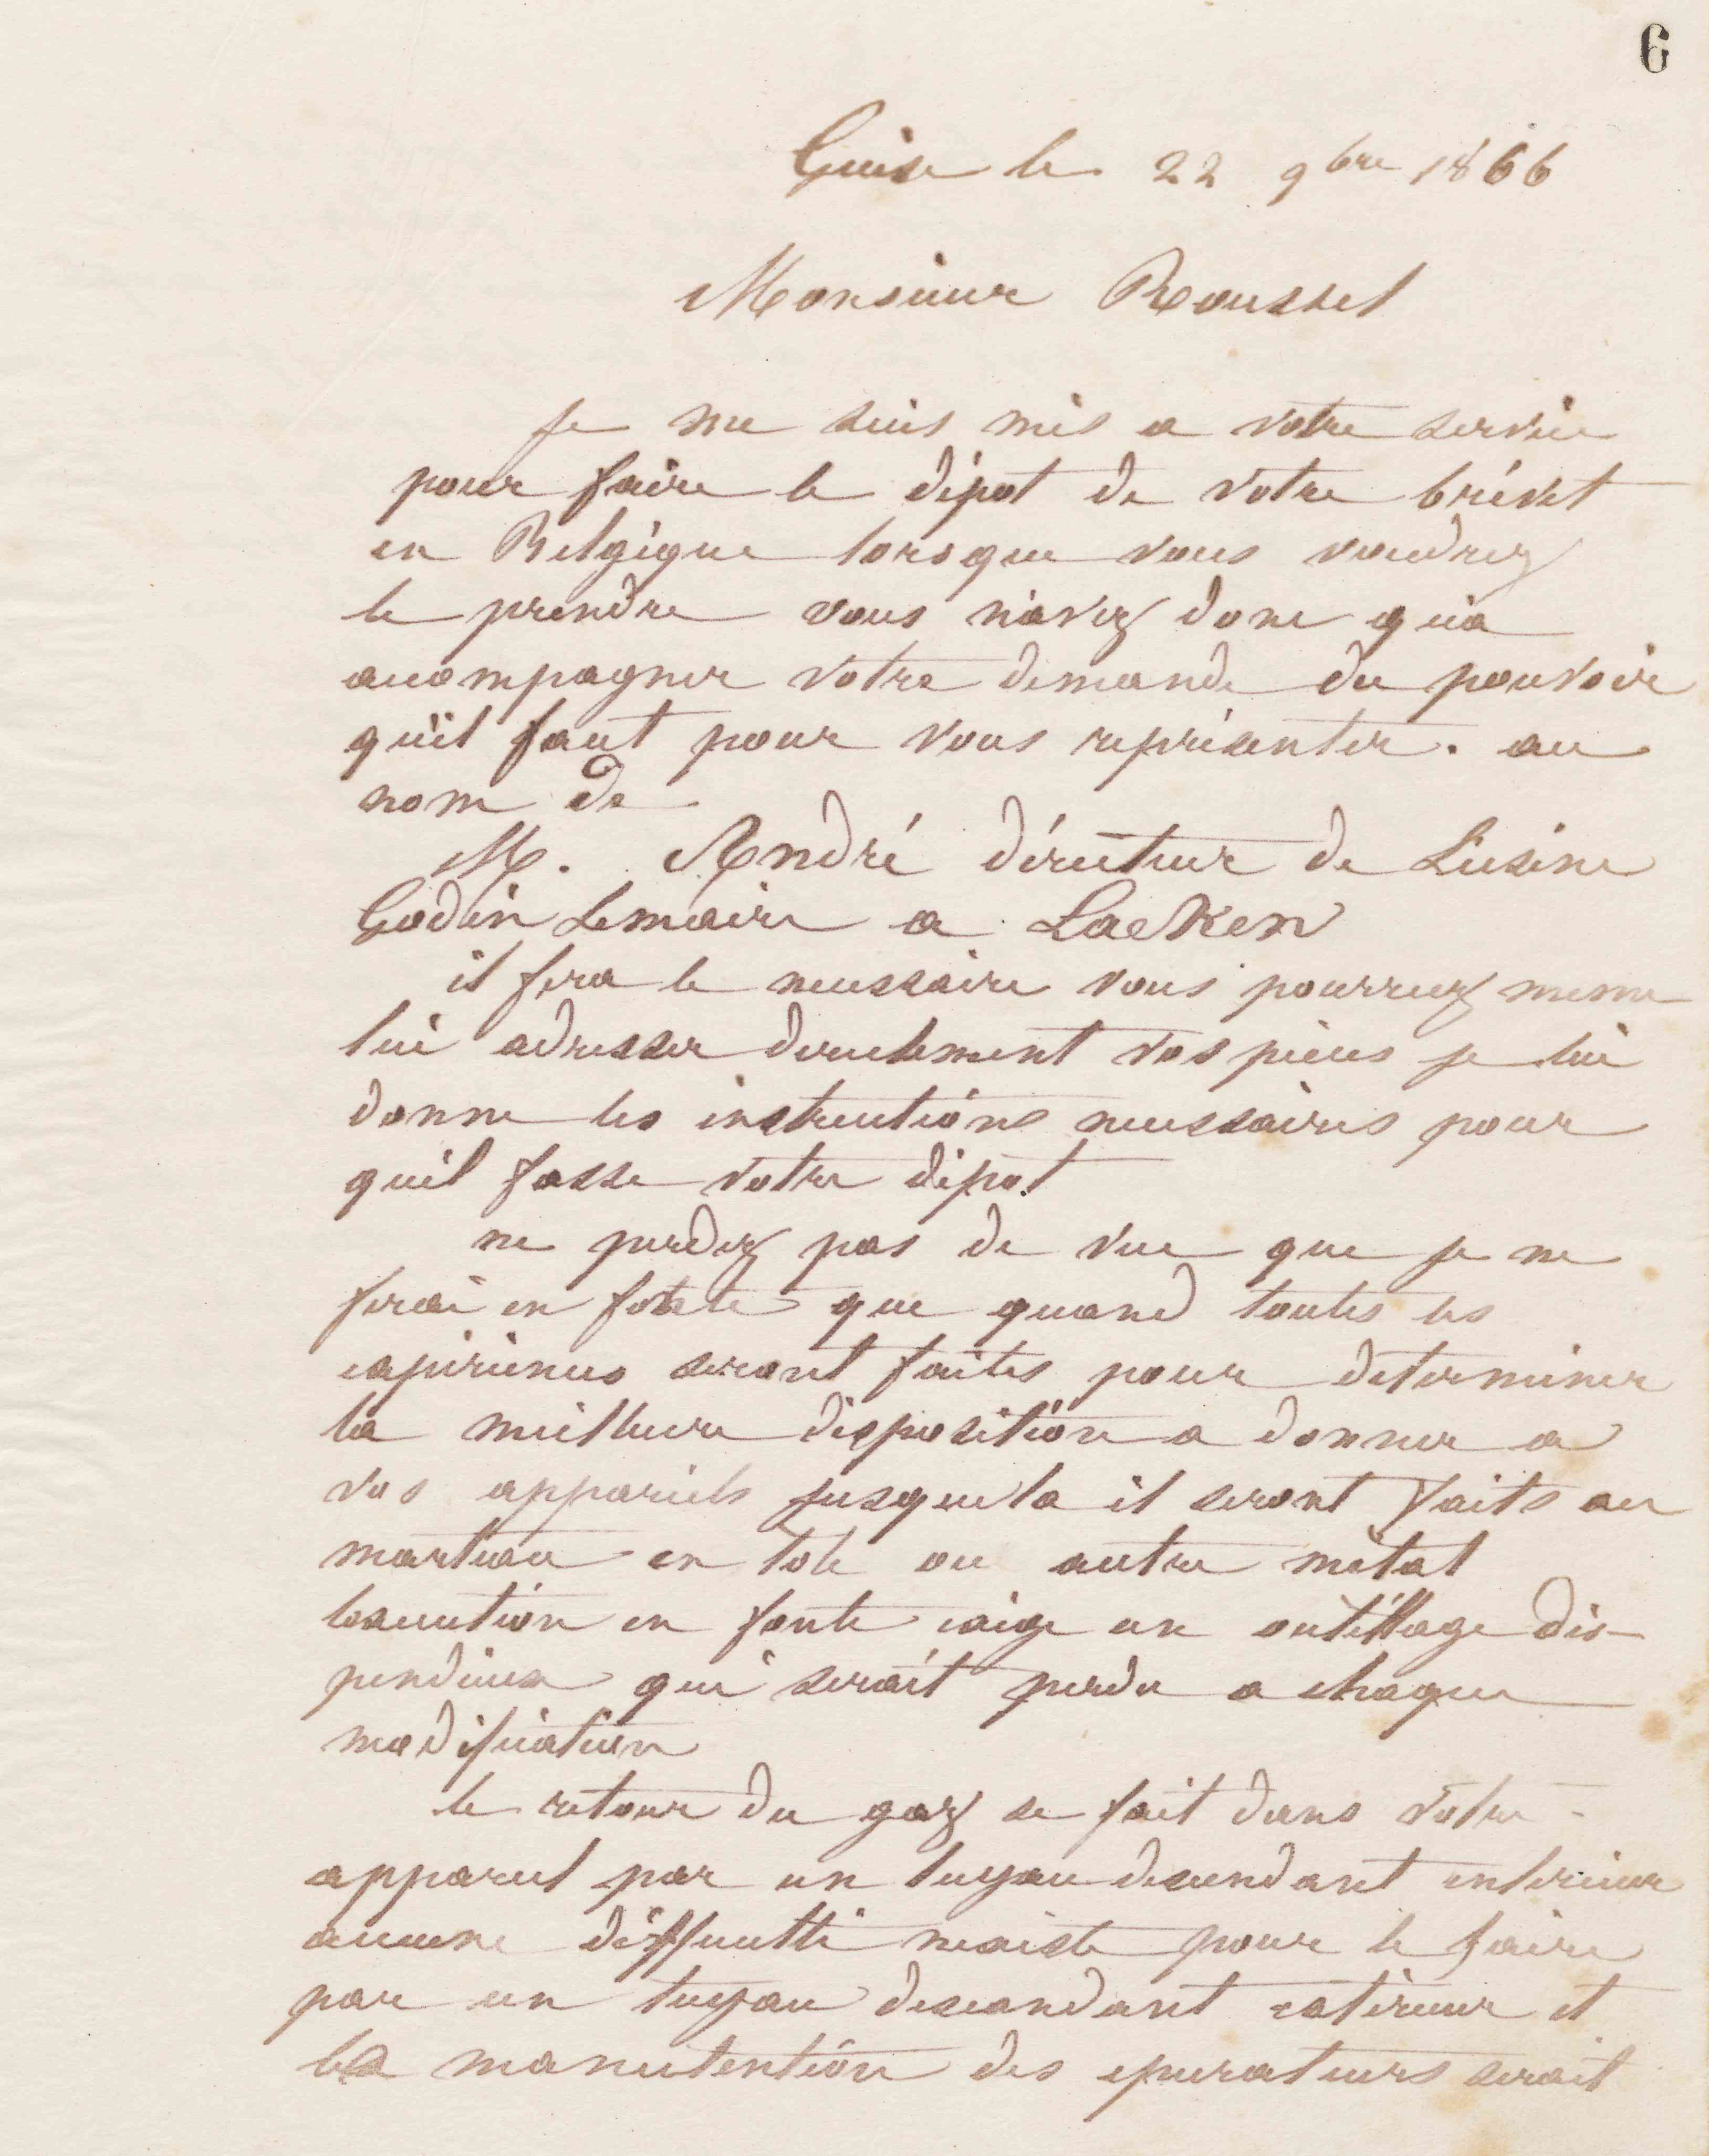 6
Guise le 22 9bre 1866
Monsieur Roussel
Je me suis mis a votre service
pour faire le dépot de votre brévet
en Belgique lorsque vous voudrez
le prendre vous n'avez donc qu'a
accompagner votre demande du pouvoir
qu'il faut pour vous représenter. au
nom de
M. André dirécteur de L'usine
Godin Lemaire a Laeken
il fera le necessaire vous pourrez meme
lui adresser directement vos pièces je lui
donne les instructions necessaires pour
quil fasse votre dépot
ne perdez pas de vue que je ne
ferai en fonte que quand toutes les
expériences seront faites pour determiner
la meilleure disposition a donner a
vos appareils jusque la il seront faits au
marteau en tole ou autre métal
lexecution en fonte exige un outillage dis-
pendieux qui serait perdu a chaque
modification
le retour du gaz se fait dans votre
appareil par un tuyau descendant interieur
aucune difficulté nexiste pour le faire
par un tuyau descendant extérieur et
la manutention des epurateurs serait